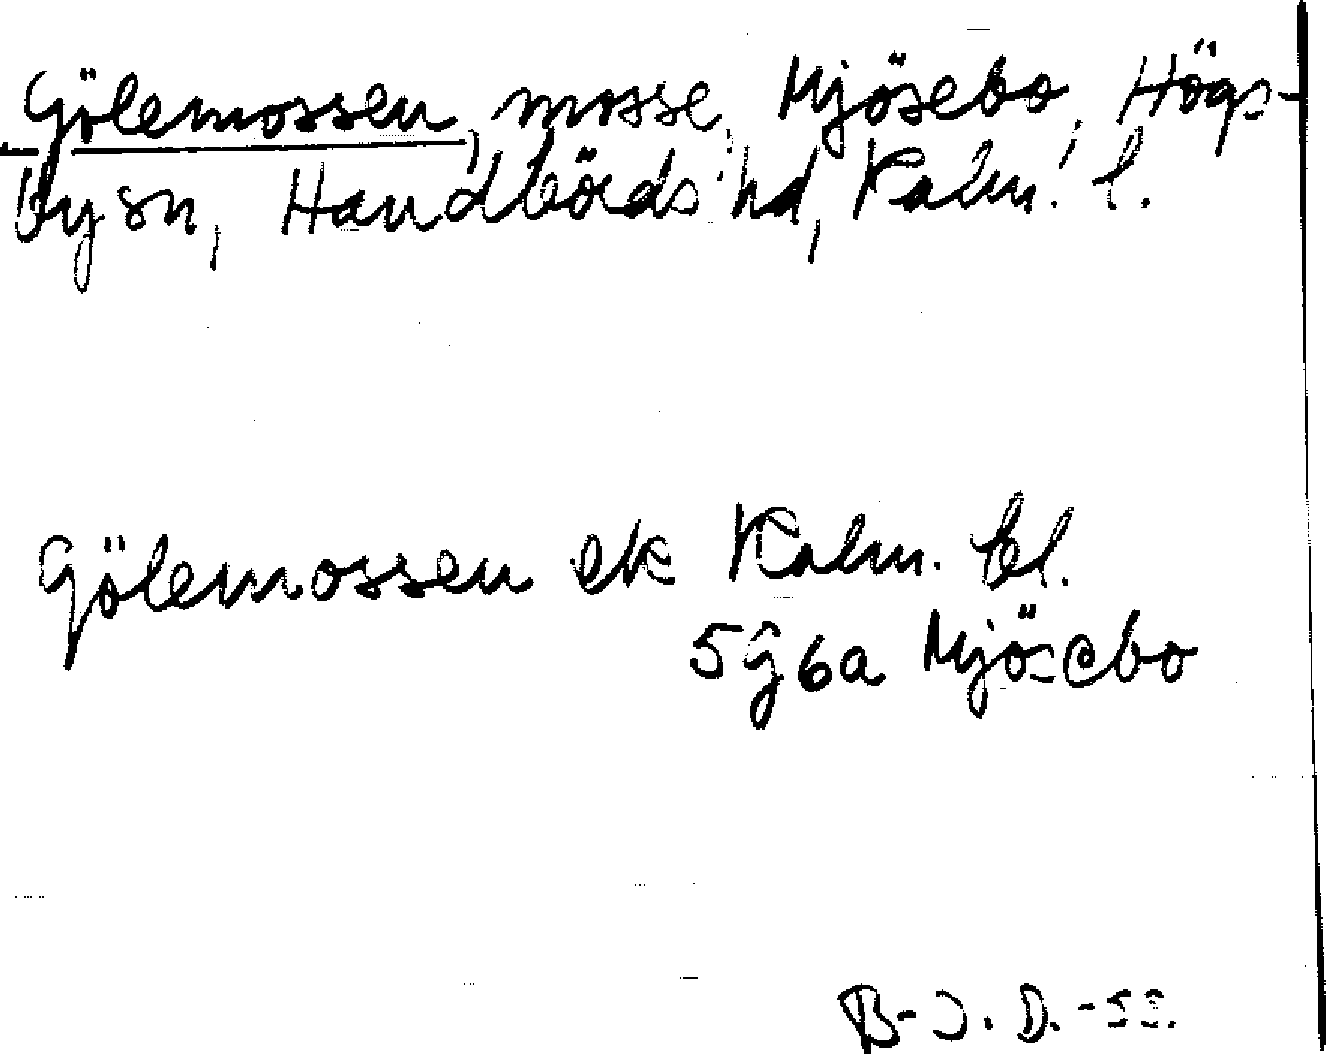 Gölemossen, mosse, Mjösebo, Högs-
by sn, Handbörds hd, Kalm. l.
Gölemossen ek Kalm. bl.
5g6a Mjösebo
B-J. D. -55.